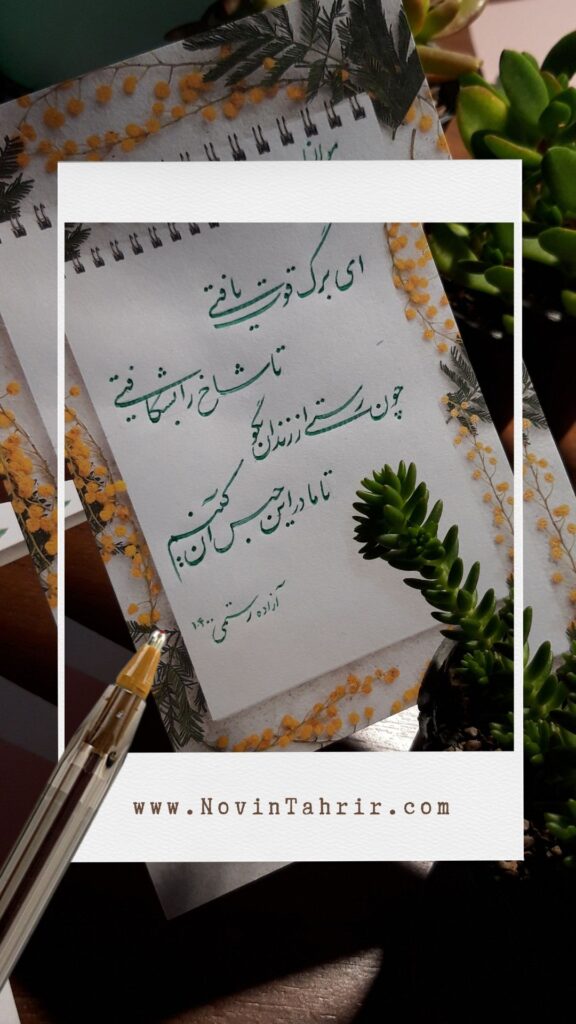 مولانا
ای برگ قوت یافتی
تا شاخ را بشکافتی
چون رستی از زندان بگو
تا ما در این حبس آن کنیم
آزاده رستمی ۱۴۰۰
www.NovinTahrir.com